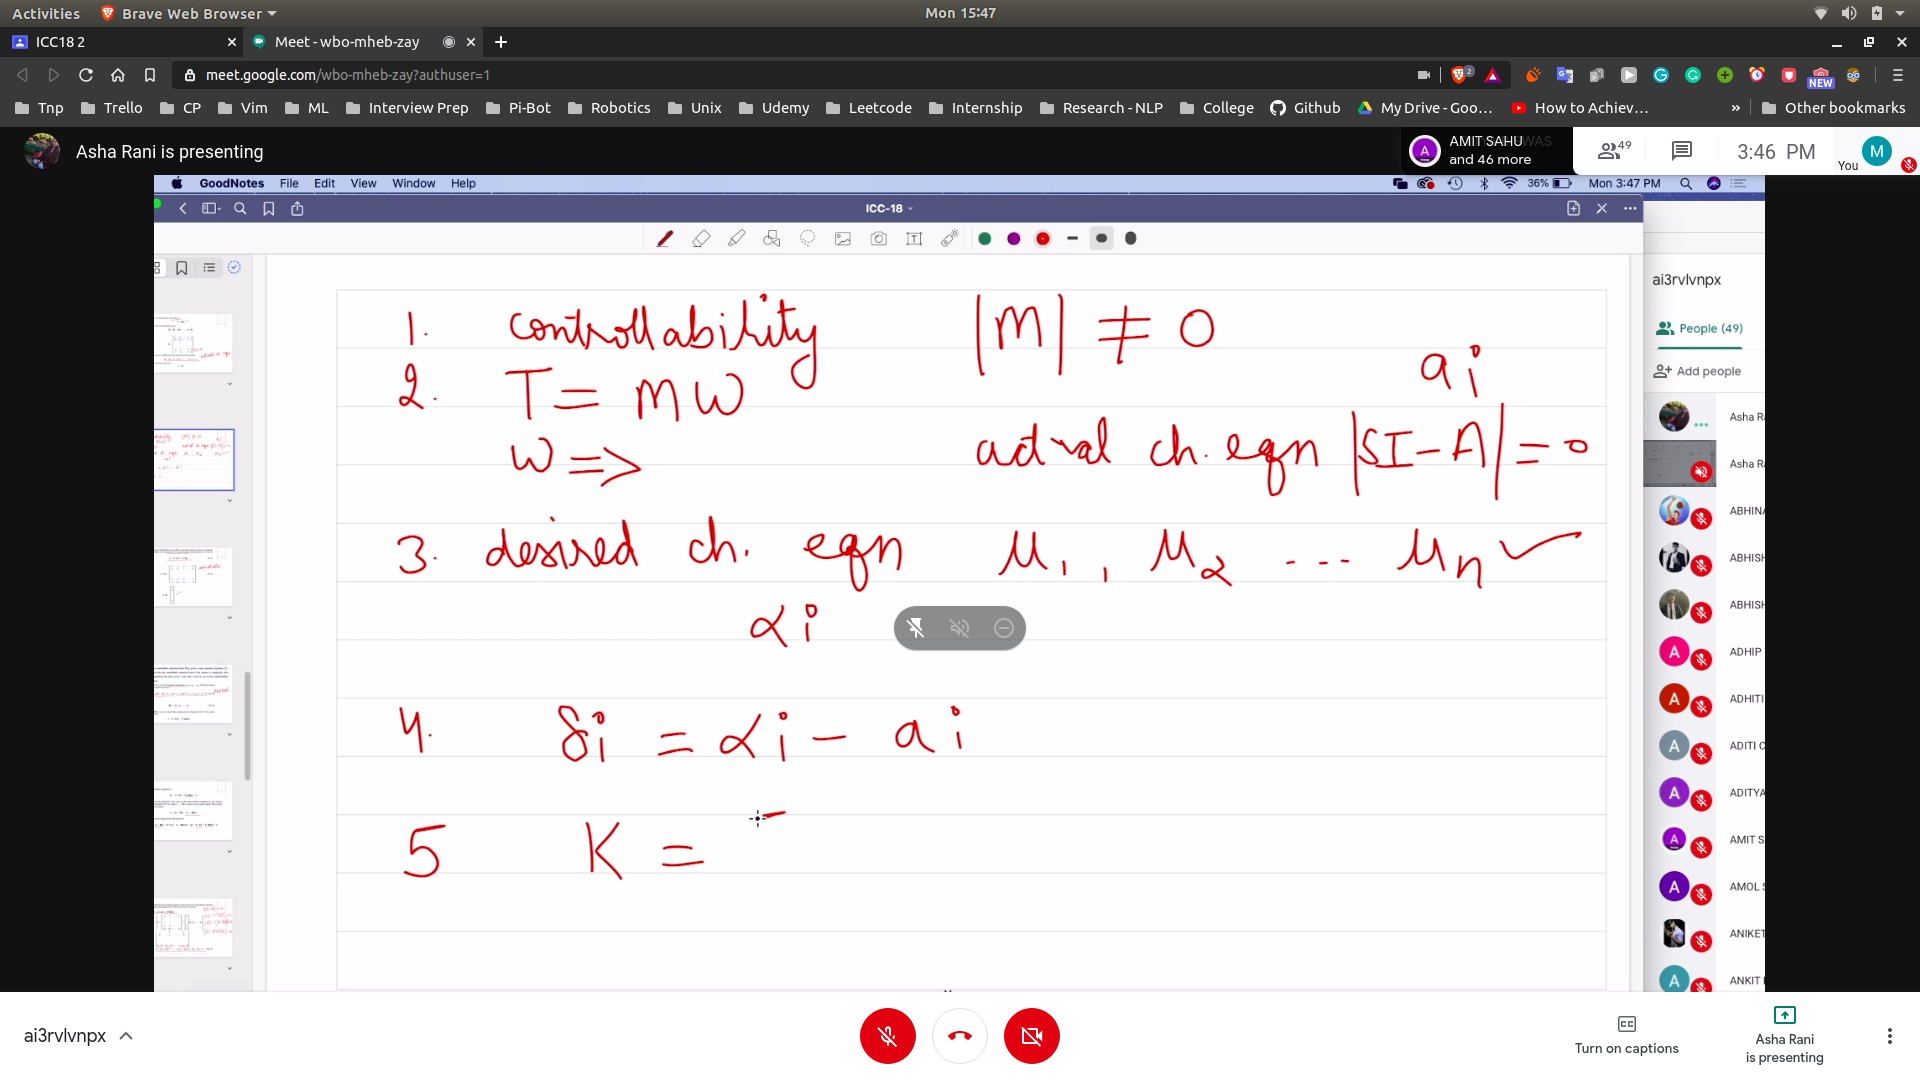 Activities Brave Web Browser Mon 15:47
ICC18 2 Meet - wbo-mheb-zay
meet.google.com/wbo-mheb-zay?authuser=1 2 NEW
Tnp Trello CP Vim ML Interview Prep Pi-Bot Robotics Unix Udemy Leetcode Internship Research - NLP College Github My Drive - Goo... How to Achiev... » Other bookmarks
Asha Rani is presenting
A AMIT SAHU
and 46 more
49 3:46 PM You M
GoodNotes File Edit View Window Help 36% Mon 3:47 PM
ICC-18
1. controllability |M| ≠ 0
ai
2. T = MW
W => actual ch. eqn |SI-A| = 0
3. desired ch. eqn μ1, μ2 ... μn ✓
αi
4. δi = αi - ai
5 K =
ai3rvlvnpx
People (49)
Add people
Asha Ra
Asha Ra
ABHINA
ABHISH
ABHISH
A ADHIP
A ADHITI
A ADITI C
A ADITYA
A AMIT S
A AMOL S
ANIKET
A ANKIT
ai3rvlvnpx
Turn on captions
Asha Rani
is presenting